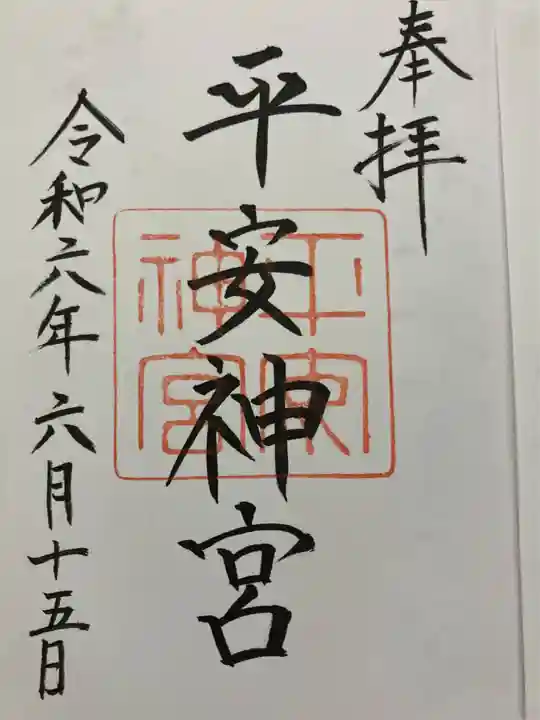 奉拝
平安神宮
平安
神宮
令和六年六月十五日